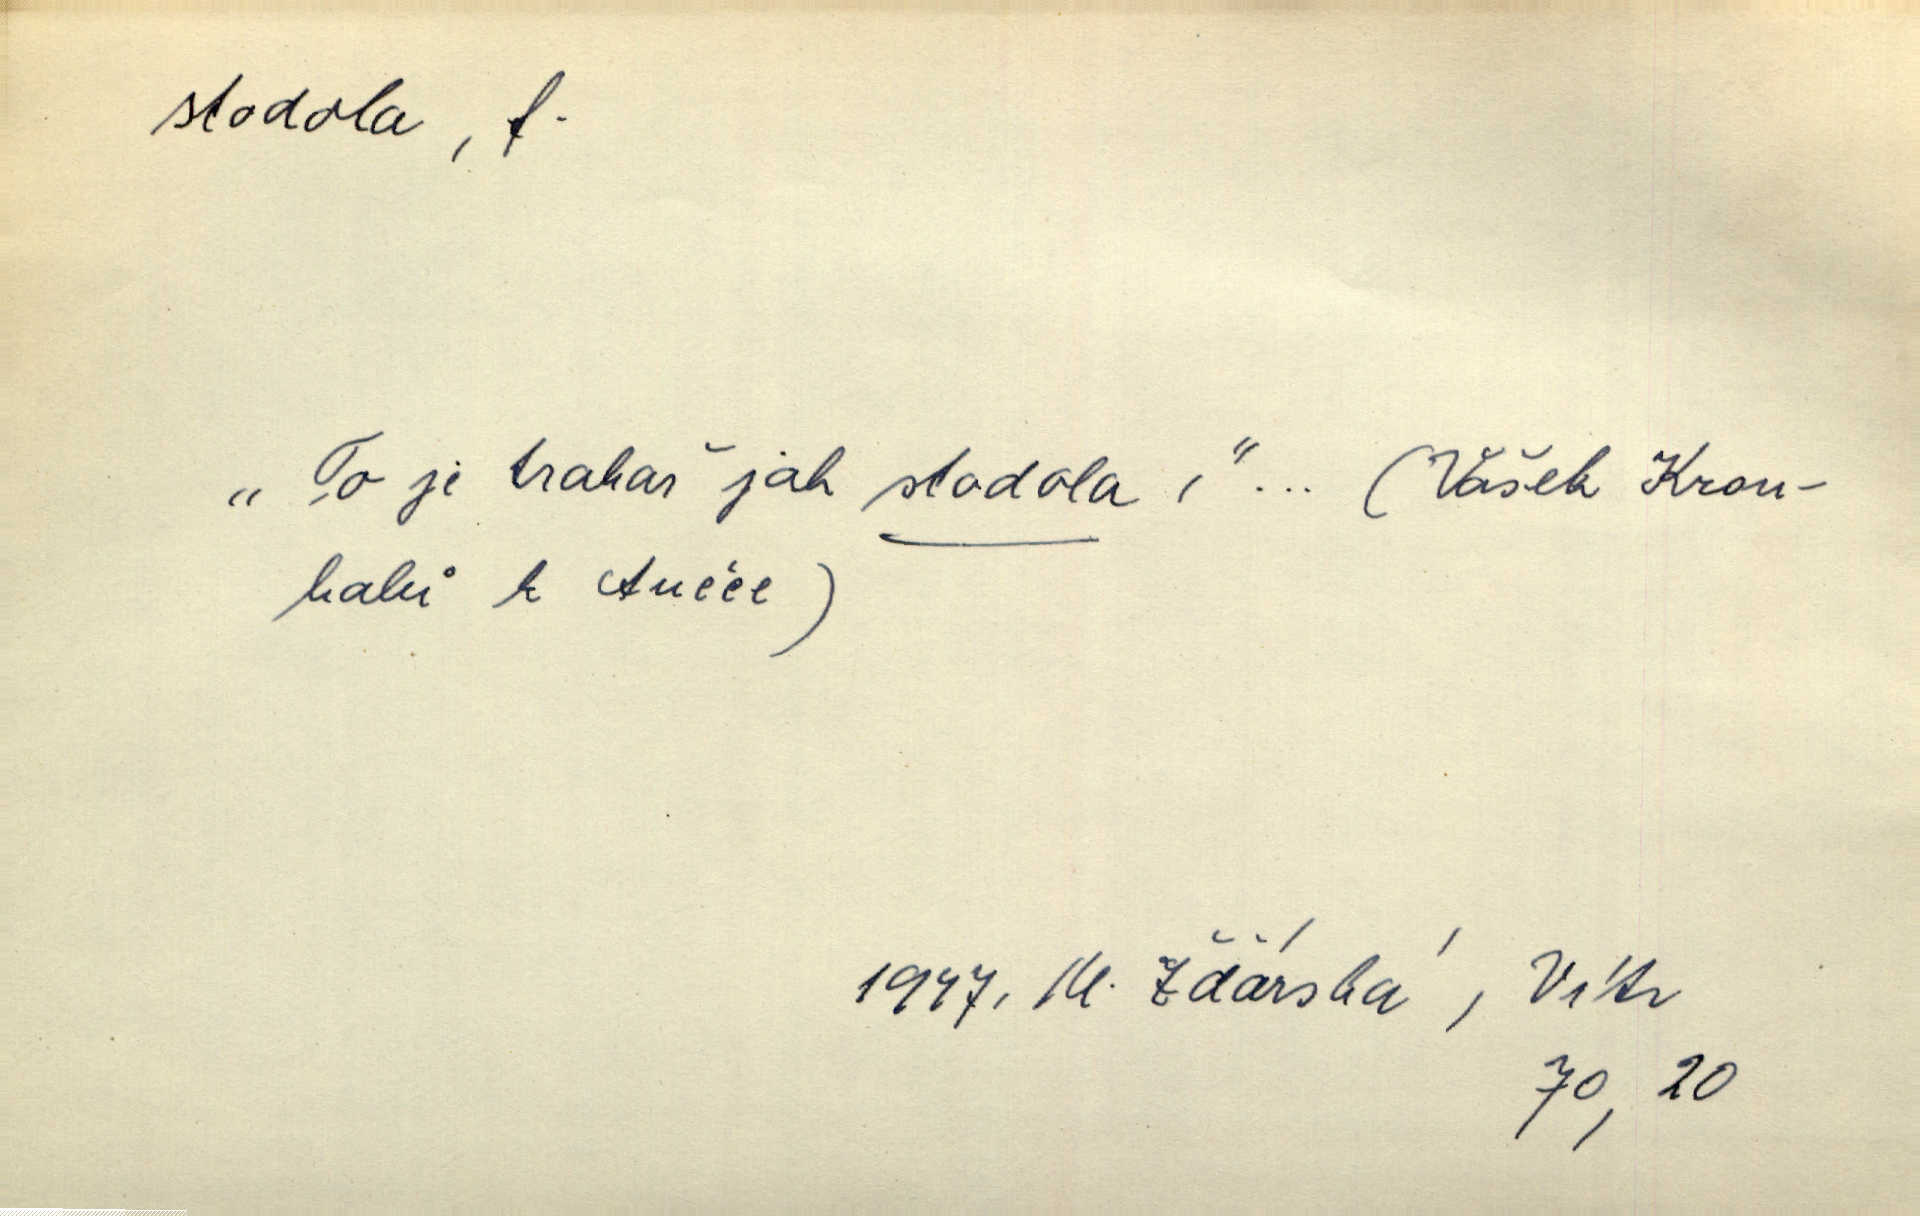 stodola, f.
„To je trakař jak stodola,“... (Vášek Krou-
kalů k Ančce)
1947, M. Žďárská, Vítr
70, 20